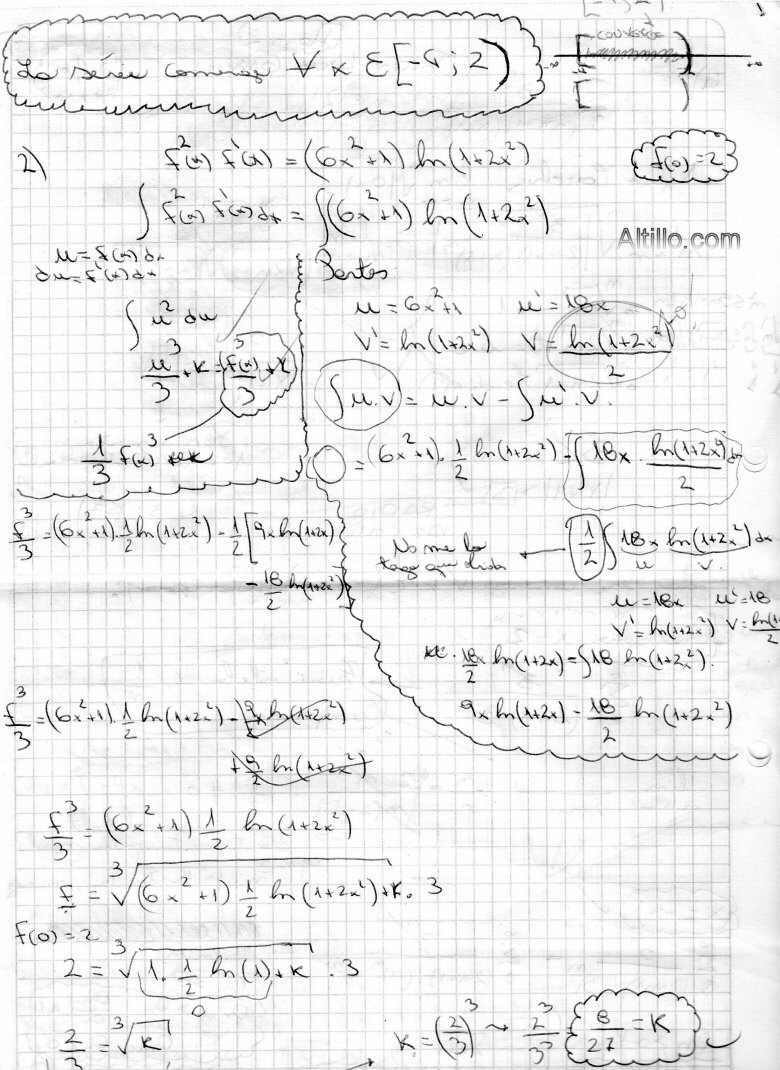 La série converge ∀ x ∈ [-4; 2)
converge
2) f²(x) f'(x) = (6x²+1) ln(1+2x²)
f(0) = 2
∫ f²(x) f'(x) dx = ∫ (6x²+1) ln(1+2x²)
Altillo.com
u = f(x) dx
du = f'(x) dx
∫ u² du
u³/3 + K = f(x)³/3 + K
1/3 f(x)³
Partes
u = 6x²+1 u' = 18x
V' = ln(1+2x²) V = ln(1+2x²)/2
∫ u.v = u.v - ∫ u'.v.
= (6x²+1). 1/2 ln(1+2x²) - ∫ 18x . ln(1+2x²)/2 dx
1/2 ∫ 18x ln(1+2x²) dx
u v.
No me la
u = 18x u' = 18
V' = ln(1+2x²) V = ln(1+
2
18x/2 ln(1+2x) = ∫ 18 ln(1+2x²).
9x ln(1+2x) - 18/2 ln(1+2x²)
f³/3 = (6x²+1). 1/2 ln(1+2x²) - 1/2 [9x ln(1+2x)
- 18/2 ln(1+2x²)]
f³/3 = (6x²+1) 1/2 ln(1+2x²) - 9/2x ln(1+2x²)
+ 9/2 ln(1+2x²)
f³/3 = (6x²+1) 1/2 ln(1+2x²)
f = ∛((6x²+1) 1/2 ln(1+2x²) + K) . 3
f(0) = 2
2 = ∛(1. 1/2 ln(1) + K) . 3
0
2/3 = ∛K
K = (2/3)³ ⇝ 2³/3³ = 8/27 = K